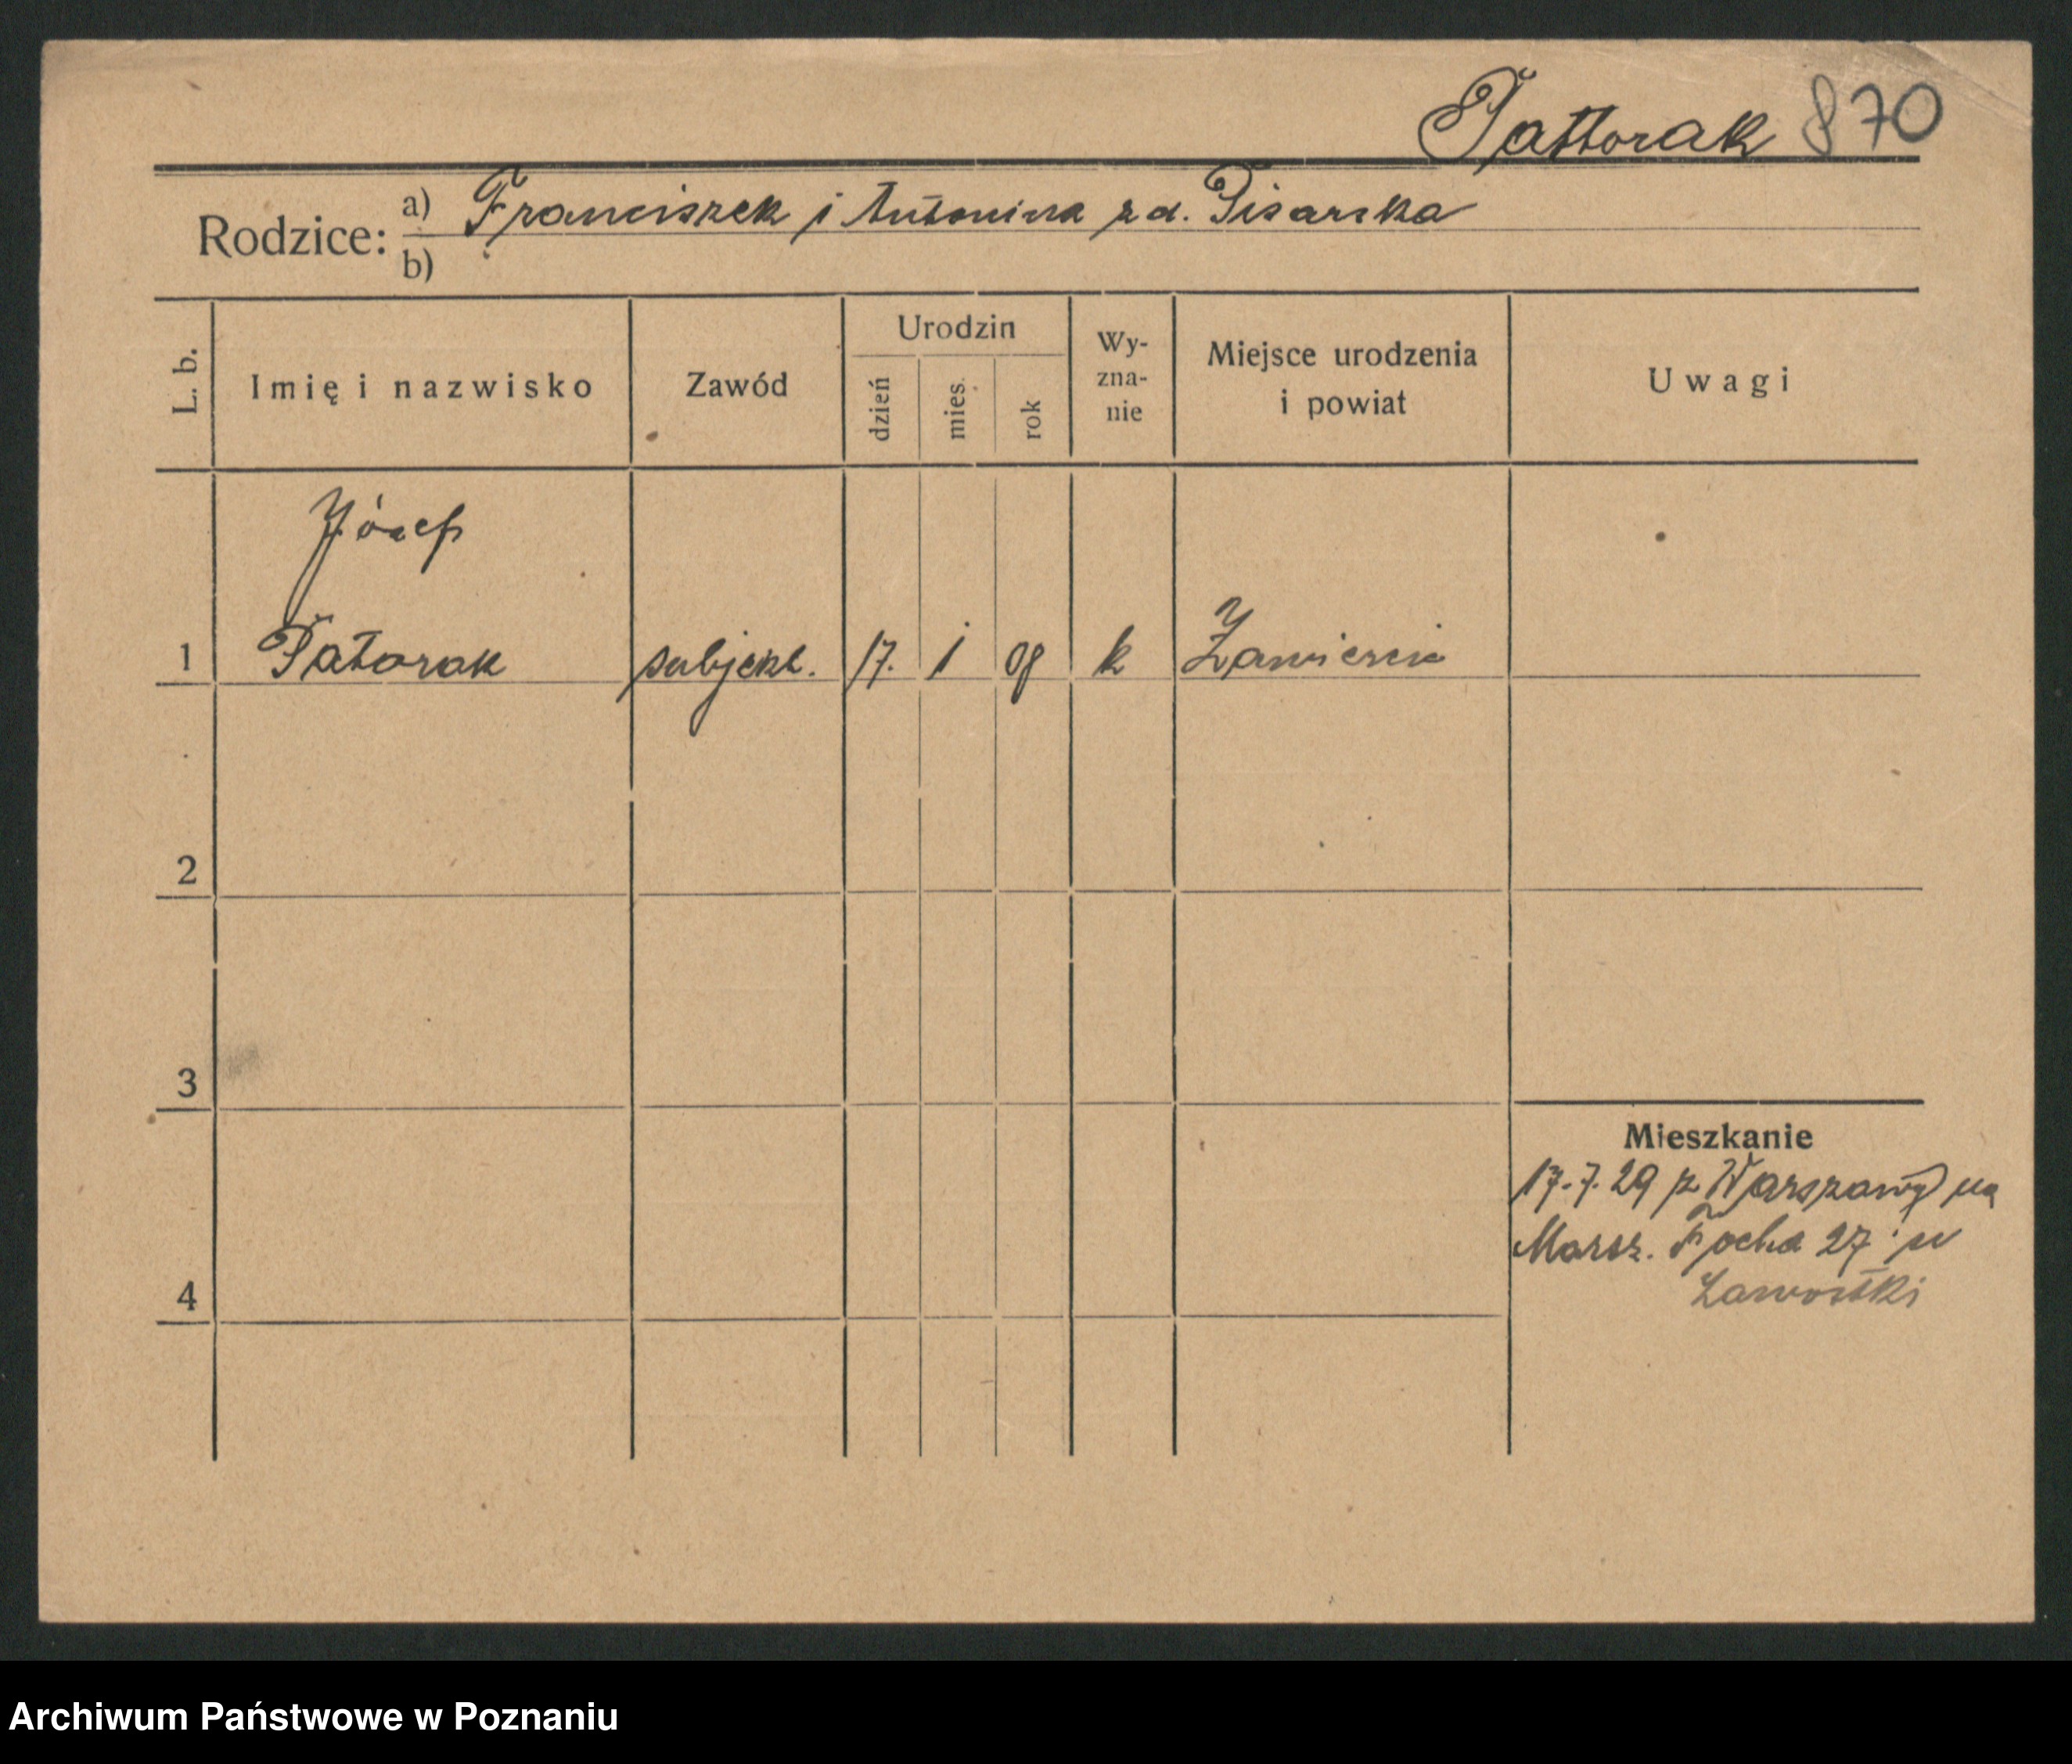 Pattorak 870
Rodzice: a) Franciszek i Antonina zd. Pisarska
b)
L. b. Imię i nazwisko Zawód Urodzin dzień mies. rok Wy-zna-nie Miejsce urodzenia i powiat Uwagi
Józef
1 Patorak subjekt. 17. i 08 k Zawiercie
2
3
4
Mieszkanie
17.7.29 z Warszawy na
Marsz. Focha 27 w
Archiwum Państwowe w Poznaniu